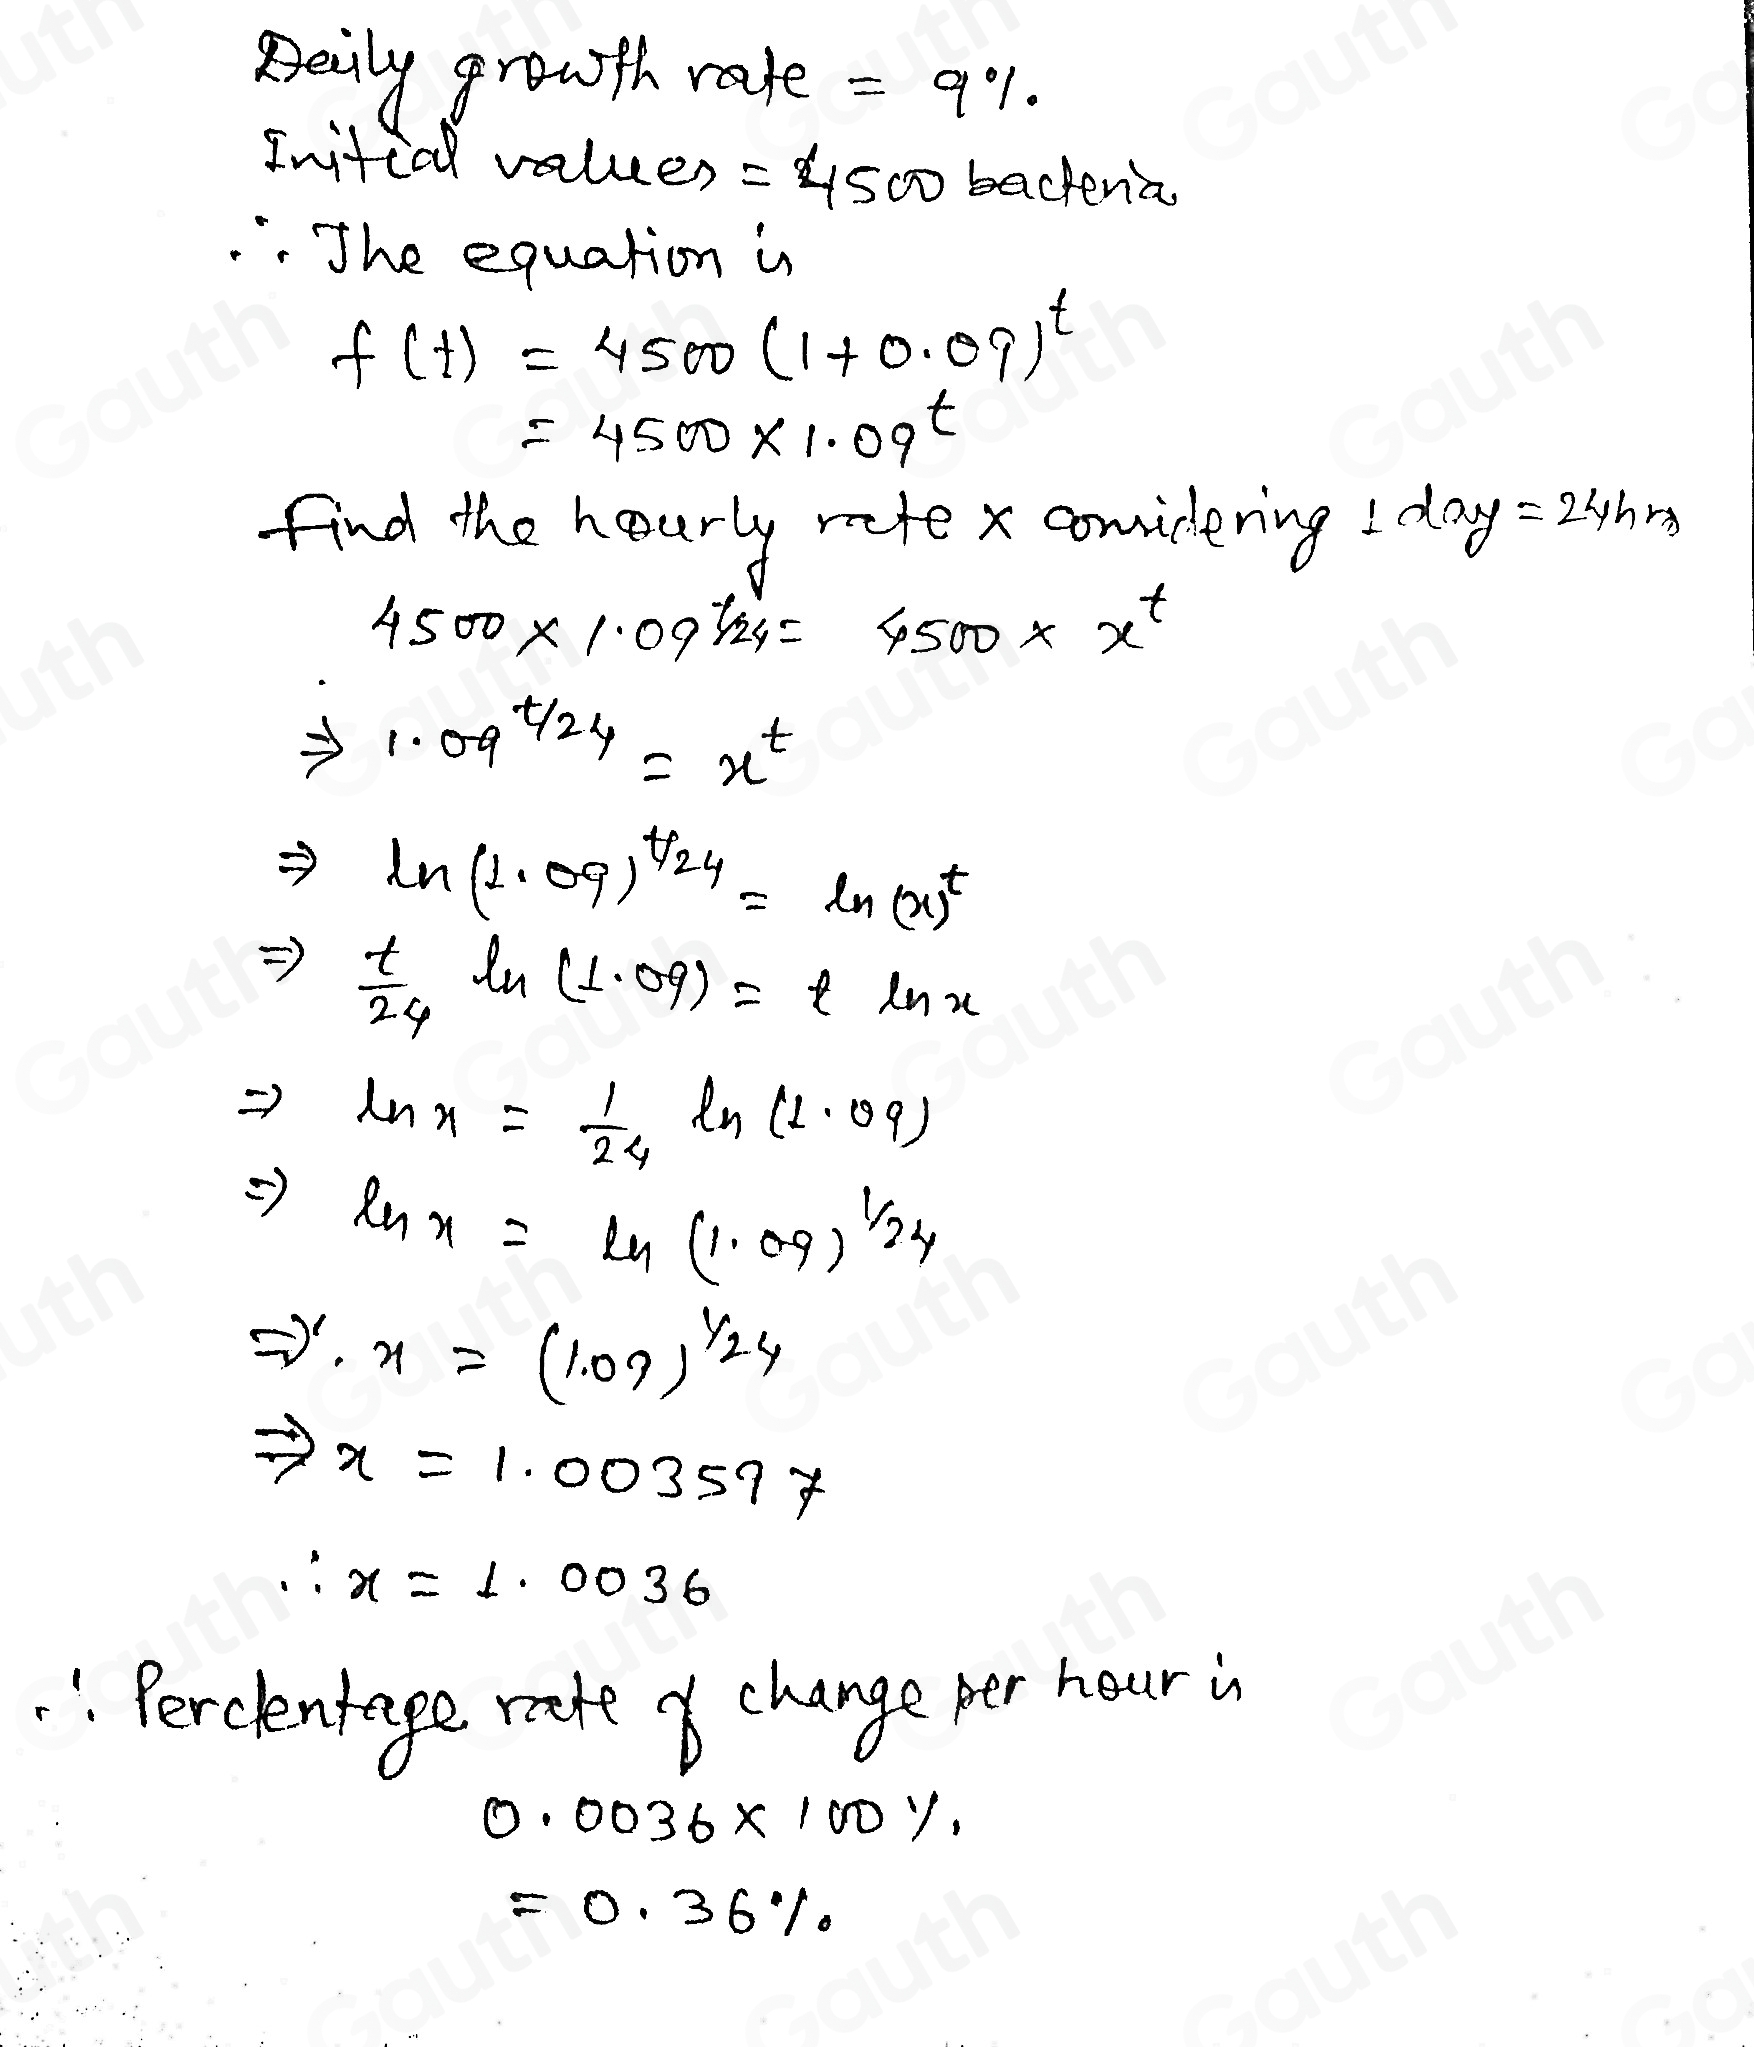 Daily growth rate = 9%.
Initial values = 4500 bacteria
∴ The equation is
f(t) = 4500 (1+0.09)^t
= 4500 × 1.09^t
find the hourly rate x considering 1 day = 24hrs
4500 × 1.09^t/24 = 4500 × x^t
⇒ 1.09^t/24 = x^t
⇒ ln(1.09)^t/24 = ln(x)^t
⇒ t/24 ln(1.09) = t ln x
⇒ ln x = 1/24 ln(1.09)
⇒ ln x = ln (1.09)^1/24
⇒ x = (1.09)^1/24
⇒ x = 1.003597
∴ x = 1.0036
∴ Percentage rate of change per hour is
0.0036 × 100%.
= 0.36%.
Gauth